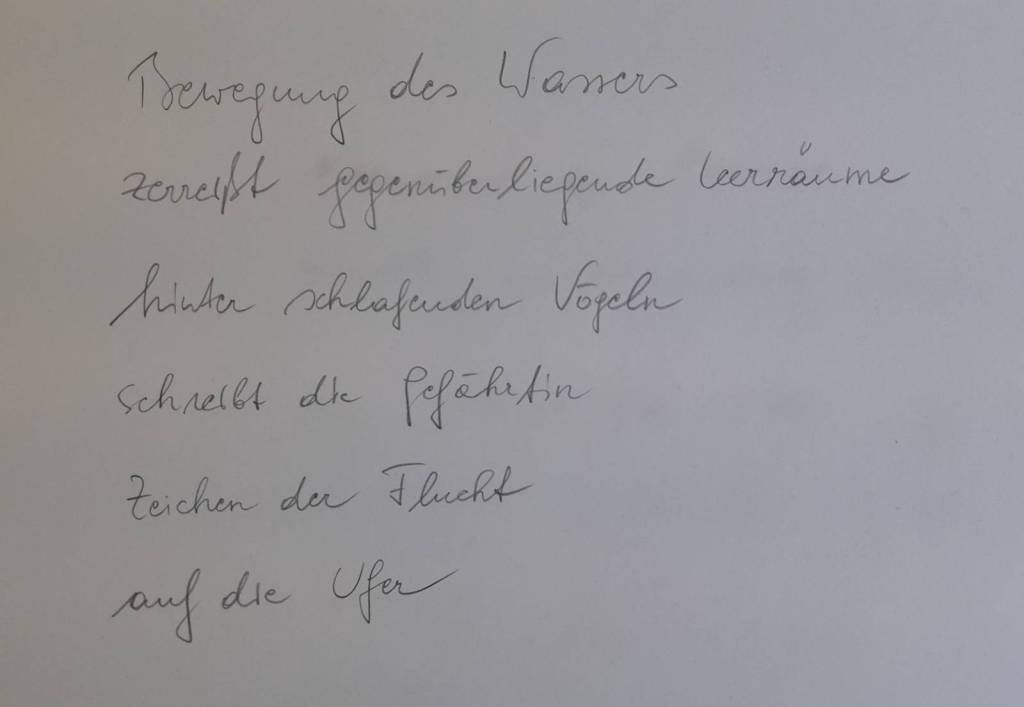 Bewegung des Wassers
zerreißt gegenüberliegende Leerräume
hinter schlafenden Vögeln
schreibt die Gefährtin
Zeichen der Flucht
auf die Ufer